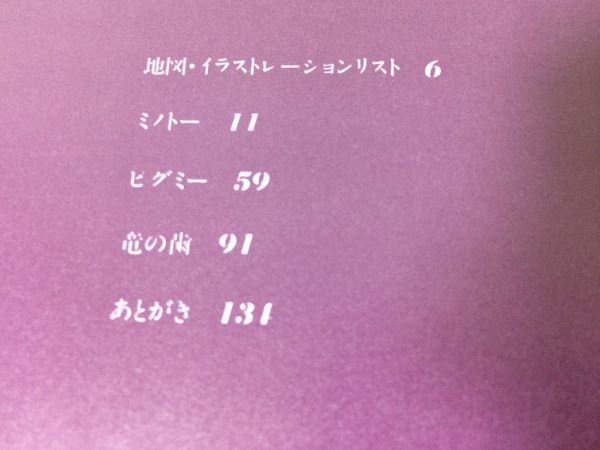 地図・イラストレーションリスト 6
ミノトー 11
ピグミー 59
竜の歯 91
あとがき 134